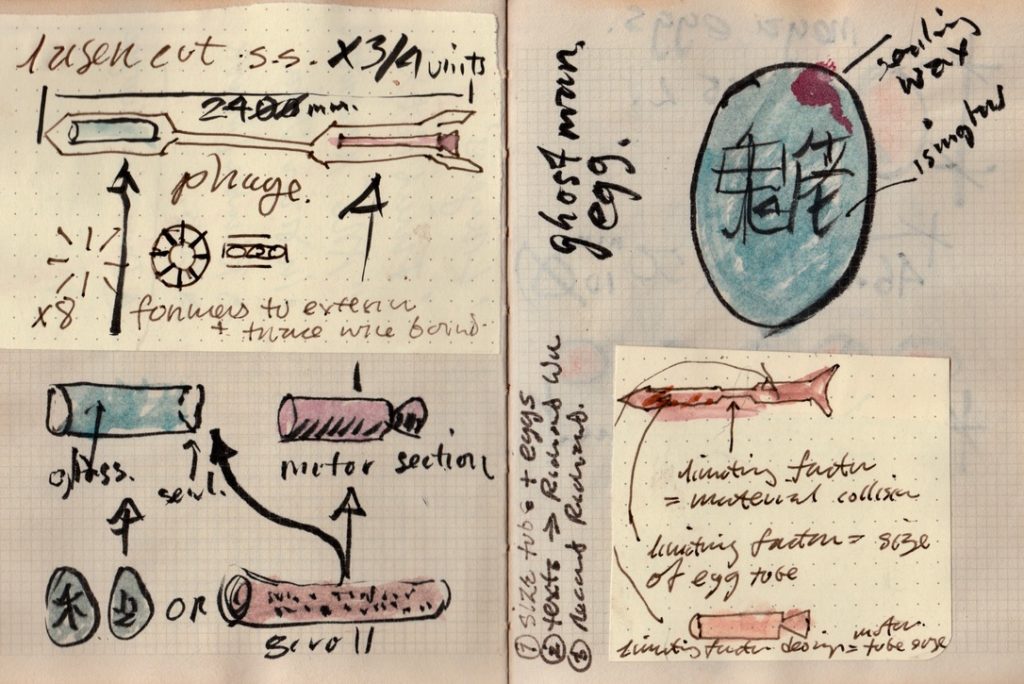 laser cut s.s. x3/4 units
mm.
phage.
x8
formers to exterior
+ wire bound.
glass.
seal.
motor section
OR
scroll
ghost man
egg.
sealing
wax
① size tube + eggs
② texts → Richard Wu
③ Richard.
limiting factor
= material collision
limiting factor = size
of egg tube
motor
limiting factor design = tube size